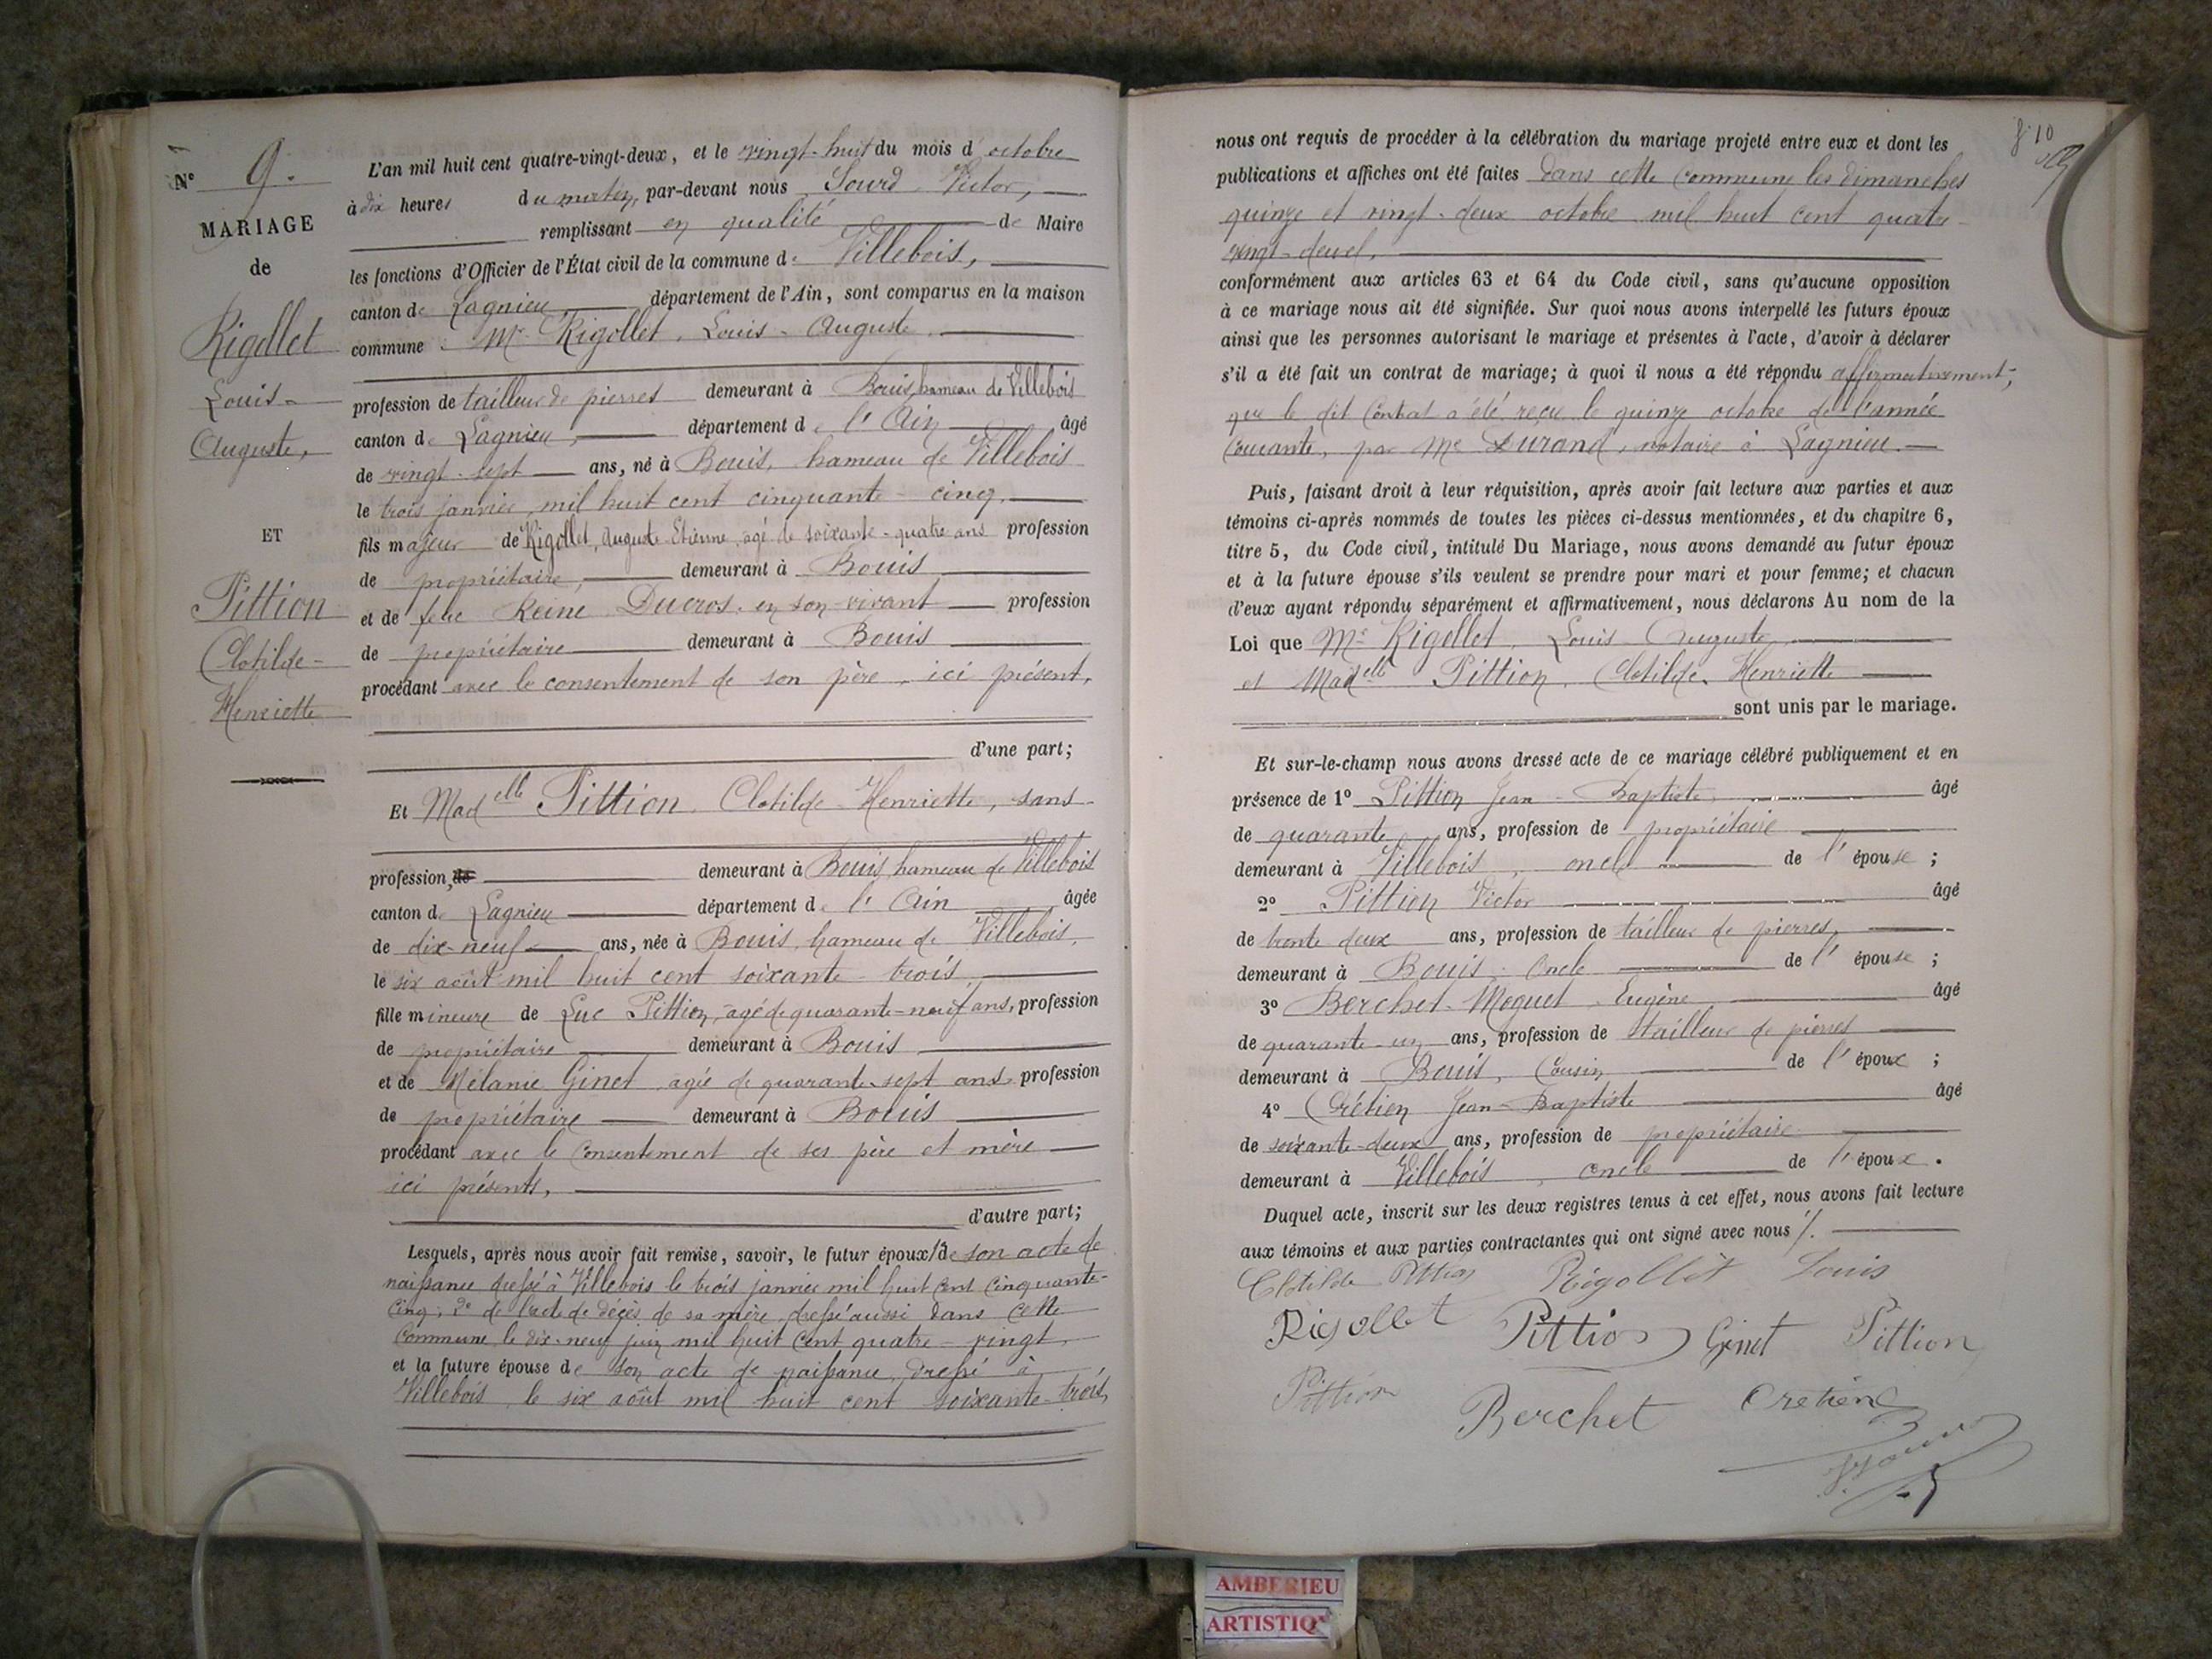 N° 9.
MARIAGE
de
Rigollet
Louis-
Auguste,
ET
Pittion
Clotilde-
Henriette
L'an mil huit cent quatre-vingt-deux, et le vingt-huit du mois d'octobre
à dix heures du matin, par-devant nous Sourd Victor,
remplissant en qualité de Maire
les fonctions d'Officier de l'État civil de la commune de Villebois,
canton de Lagnieu département de l'Ain, sont comparus en la maison
commune Mr Rigollet, Louis-Auguste
profession de tailleur de pierres demeurant à Bouis, hameau de Villebois
canton de Lagnieu, département de l'Ain âgé
de vingt-sept ans, né à Bouis, hameau de Villebois
le trois janvier mil huit cent cinquante-cinq,
fils majeur de Rigollet, Auguste-Etienne, agé de soixante-quatre ans profession
de propriétaire, demeurant à Bouis
et de feue Reine Ducros, en son vivant profession
de propriétaire demeurant à Bouis
procédant avec le consentement de son père, ici présent,
d'une part;
Et Madelle Pittion, Clotilde-Henriette, sans
profession, de demeurant à Bouis, hameau de Villebois
canton de Lagnieu département de l'Ain âgée
de dix-neuf ans, née à Bouis, hameau de Villebois,
le six août mil huit cent soixante-trois,
fille mineure de Luc Pittion, agé de quarante-neuf ans, profession
de propriétaire demeurant à Bouis
et de Mélanie Ginet, agée de quarante-sept ans, profession
de propriétaire demeurant à Bouis
procédant avec le consentement de ses père et mère
ici présents,
d'autre part;
Lesquels, après nous avoir fait remise, savoir, le futur époux 1° de son acte de
naissance dressé à Villebois le trois janvier mil huit cent cinquante-
cinq; 2° de l'acte de décès de sa mère, dressé aussi dans cette
commune le dix-neuf juin mil huit cent quatre-vingt,
et la future épouse de son acte de naissance, dressé à
Villebois, le six août mil huit cent soixante-trois,
10
nous ont requis de procéder à la célébration du mariage projeté entre eux et dont les
publications et affiches ont été faites dans cette commune les dimanches
quinze et vingt-deux octobre mil huit cent quatre
vingt-deux,
conformément aux articles 63 et 64 du Code civil, sans qu'aucune opposition
à ce mariage nous ait été signifiée. Sur quoi nous avons interpellé les futurs époux
ainsi que les personnes autorisant le mariage et présentes à l'acte, d'avoir à déclarer
s'il a été fait un contrat de mariage; à quoi il nous a été répondu affirmativement;
que le dit contrat a été reçu le quinze octobre de l'année
courante, par Me Durand, notaire à Lagnieu.
Puis, faisant droit à leur réquisition, après avoir fait lecture aux parties et aux
témoins ci-après nommés de toutes les pièces ci-dessus mentionnées, et du chapitre 6,
titre 5, du Code civil, intitulé Du Mariage, nous avons demandé au futur époux
et à la future épouse s'ils veulent se prendre pour mari et pour femme; et chacun
d'eux ayant répondu séparément et affirmativement, nous déclarons Au nom de la
Loi que Mr Rigollet, Louis Auguste,
et Madelle Pittion, Clotilde Henriette
sont unis par le mariage.
Et sur-le-champ nous avons dressé acte de ce mariage célébré publiquement et en
présence de 1° Pittion Jean-Baptiste, âgé
de quarante ans, profession de propriétaire
demeurant à Villebois, oncle de l'épouse;
2° Pittion Victor âgé
de trente deux ans, profession de tailleur de pierres,
demeurant à Bouis, oncle de l'épouse;
3° Berchet-Moguet, Eugène, âgé
de quarante-un ans, profession de tailleur de pierres
demeurant à Bouis, cousin de l'époux;
4° Crétien Jean-Baptiste âgé
de soixante-deux ans, profession de propriétaire
demeurant à Villebois, oncle de l'époux.
Duquel acte, inscrit sur les deux registres tenus à cet effet, nous avons fait lecture
aux témoins et aux parties contractantes qui ont signé avec nous /.
Clotilde Pittion Rigollet Louis
Rigollet Pittion Ginet Pittion
Pittion Berchet Cretien
AMBERIEU
ARTISTIQ